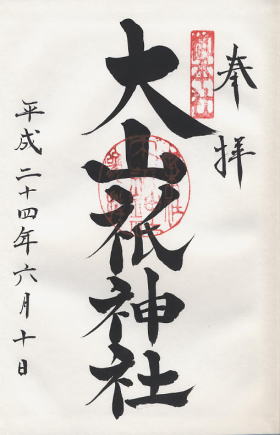 奉拝
大山祇神社
平成二十四年六月十日